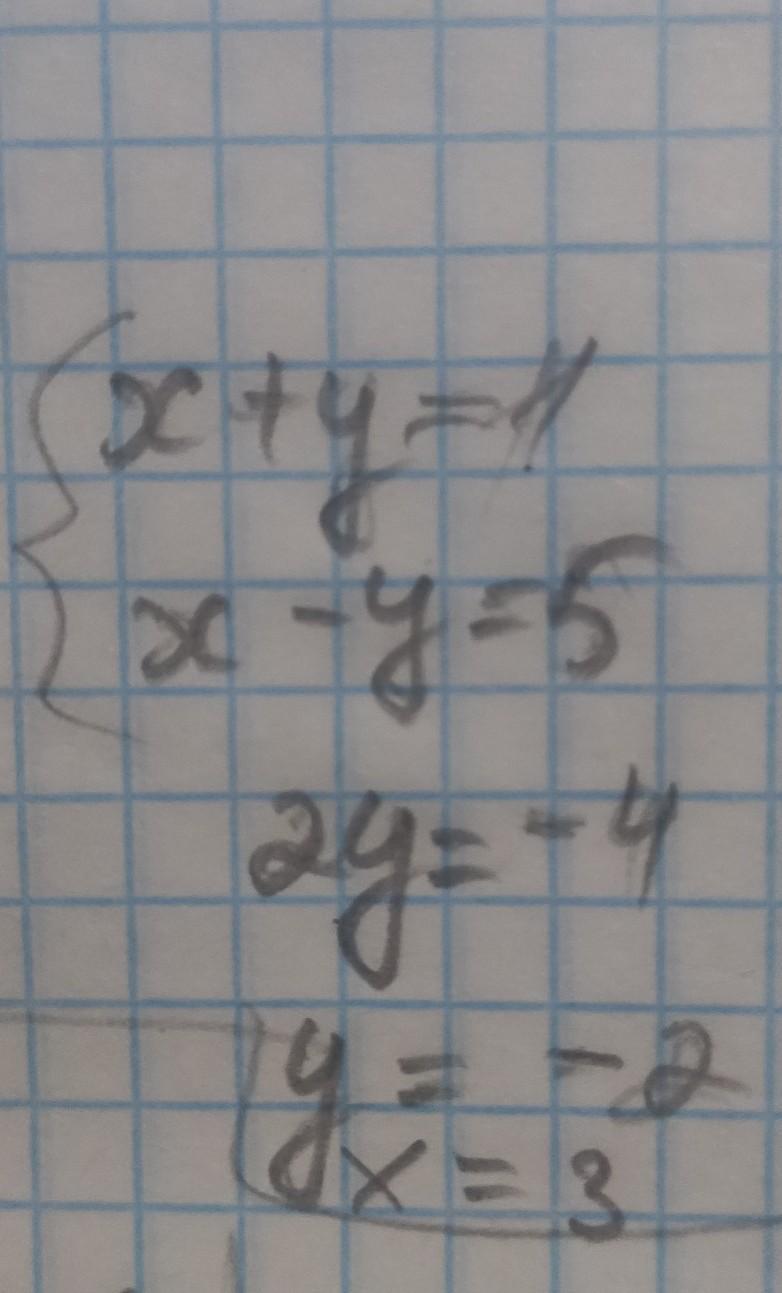 x + y = 1
x - y = 5
2y = -4
y = -2
x = 3